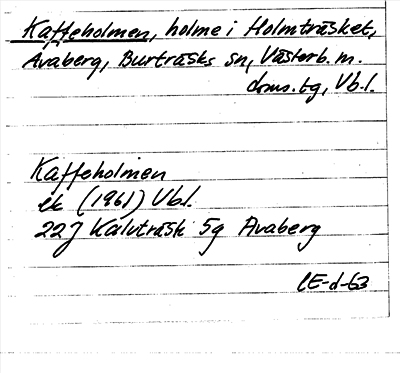 Kaffeholmen, holme i Holmträsket,
Avaberg, Burträsks sn, Västerb. m.
doms.tg, Vb.l.
Kaffeholmen
ek (1961) Vbl.
22J Kalvträsk 5g Avaberg
CE-d-63